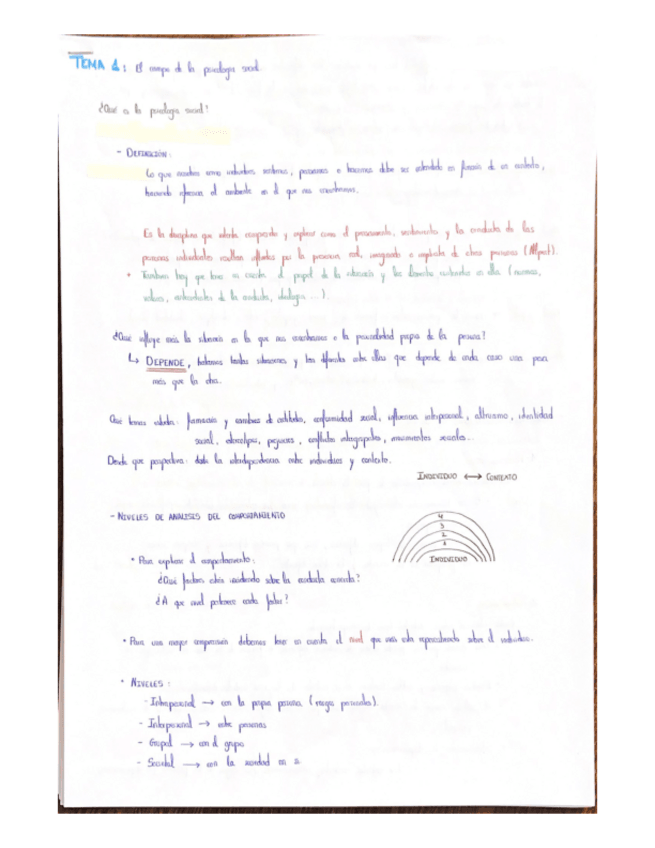 TEMA 1: El campo de la psicología social
¿Qué es la psicología social?
- DEFINICIÓN:
Lo que nosotros como individuos sentimos, pensamos o hacemos debe ser entendido en función de un contexto,
haciendo referencia al ambiente en el que nos encontramos.
Es la disciplina que intenta comprender y explicar cómo el pensamiento, sentimiento y la conducta de las
personas individuales resultan influidos por la presencia real, imaginada o implícita de otras personas (Allport).
• También hay que tener en cuenta el papel de la situación y los elementos en ella (normas,
valores, de la conducta, ...).
¿Qué influye más la situación en la que nos encontramos o la personalidad propia de la persona?
↳ DEPENDE, habemos tantas situaciones y tan diferentes entre ellas que depende de cada caso una pesa
más que la otra.
Qué temas estudia: formación y cambios de actitudes, conformidad social, influencia interpersonal, altruismo, identidad
social, estereotipos, prejuicios, conflictos intergrupales, movimientos sociales...
Desde qué perspectiva: dada la interdependencia entre individuos y contexto.
INDIVIDUO ↔ CONTEXTO
- NIVELES DE ANÁLISIS DEL COMPORTAMIENTO
4
3
2
1
INDIVIDUO
• Para explicar el comportamiento:
¿Qué factores están incidiendo sobre la conducta concreta?
¿A qué nivel pertenece cada factor?
• Para una mejor comprensión debemos tener en cuenta el nivel que más está repercutiendo sobre el individuo.
• NIVELES:
- Intrapersonal → con la propia persona (rasgos personales).
- Interpersonal → entre personas
- Grupal → con el grupo
- Societal → con la sociedad en sí